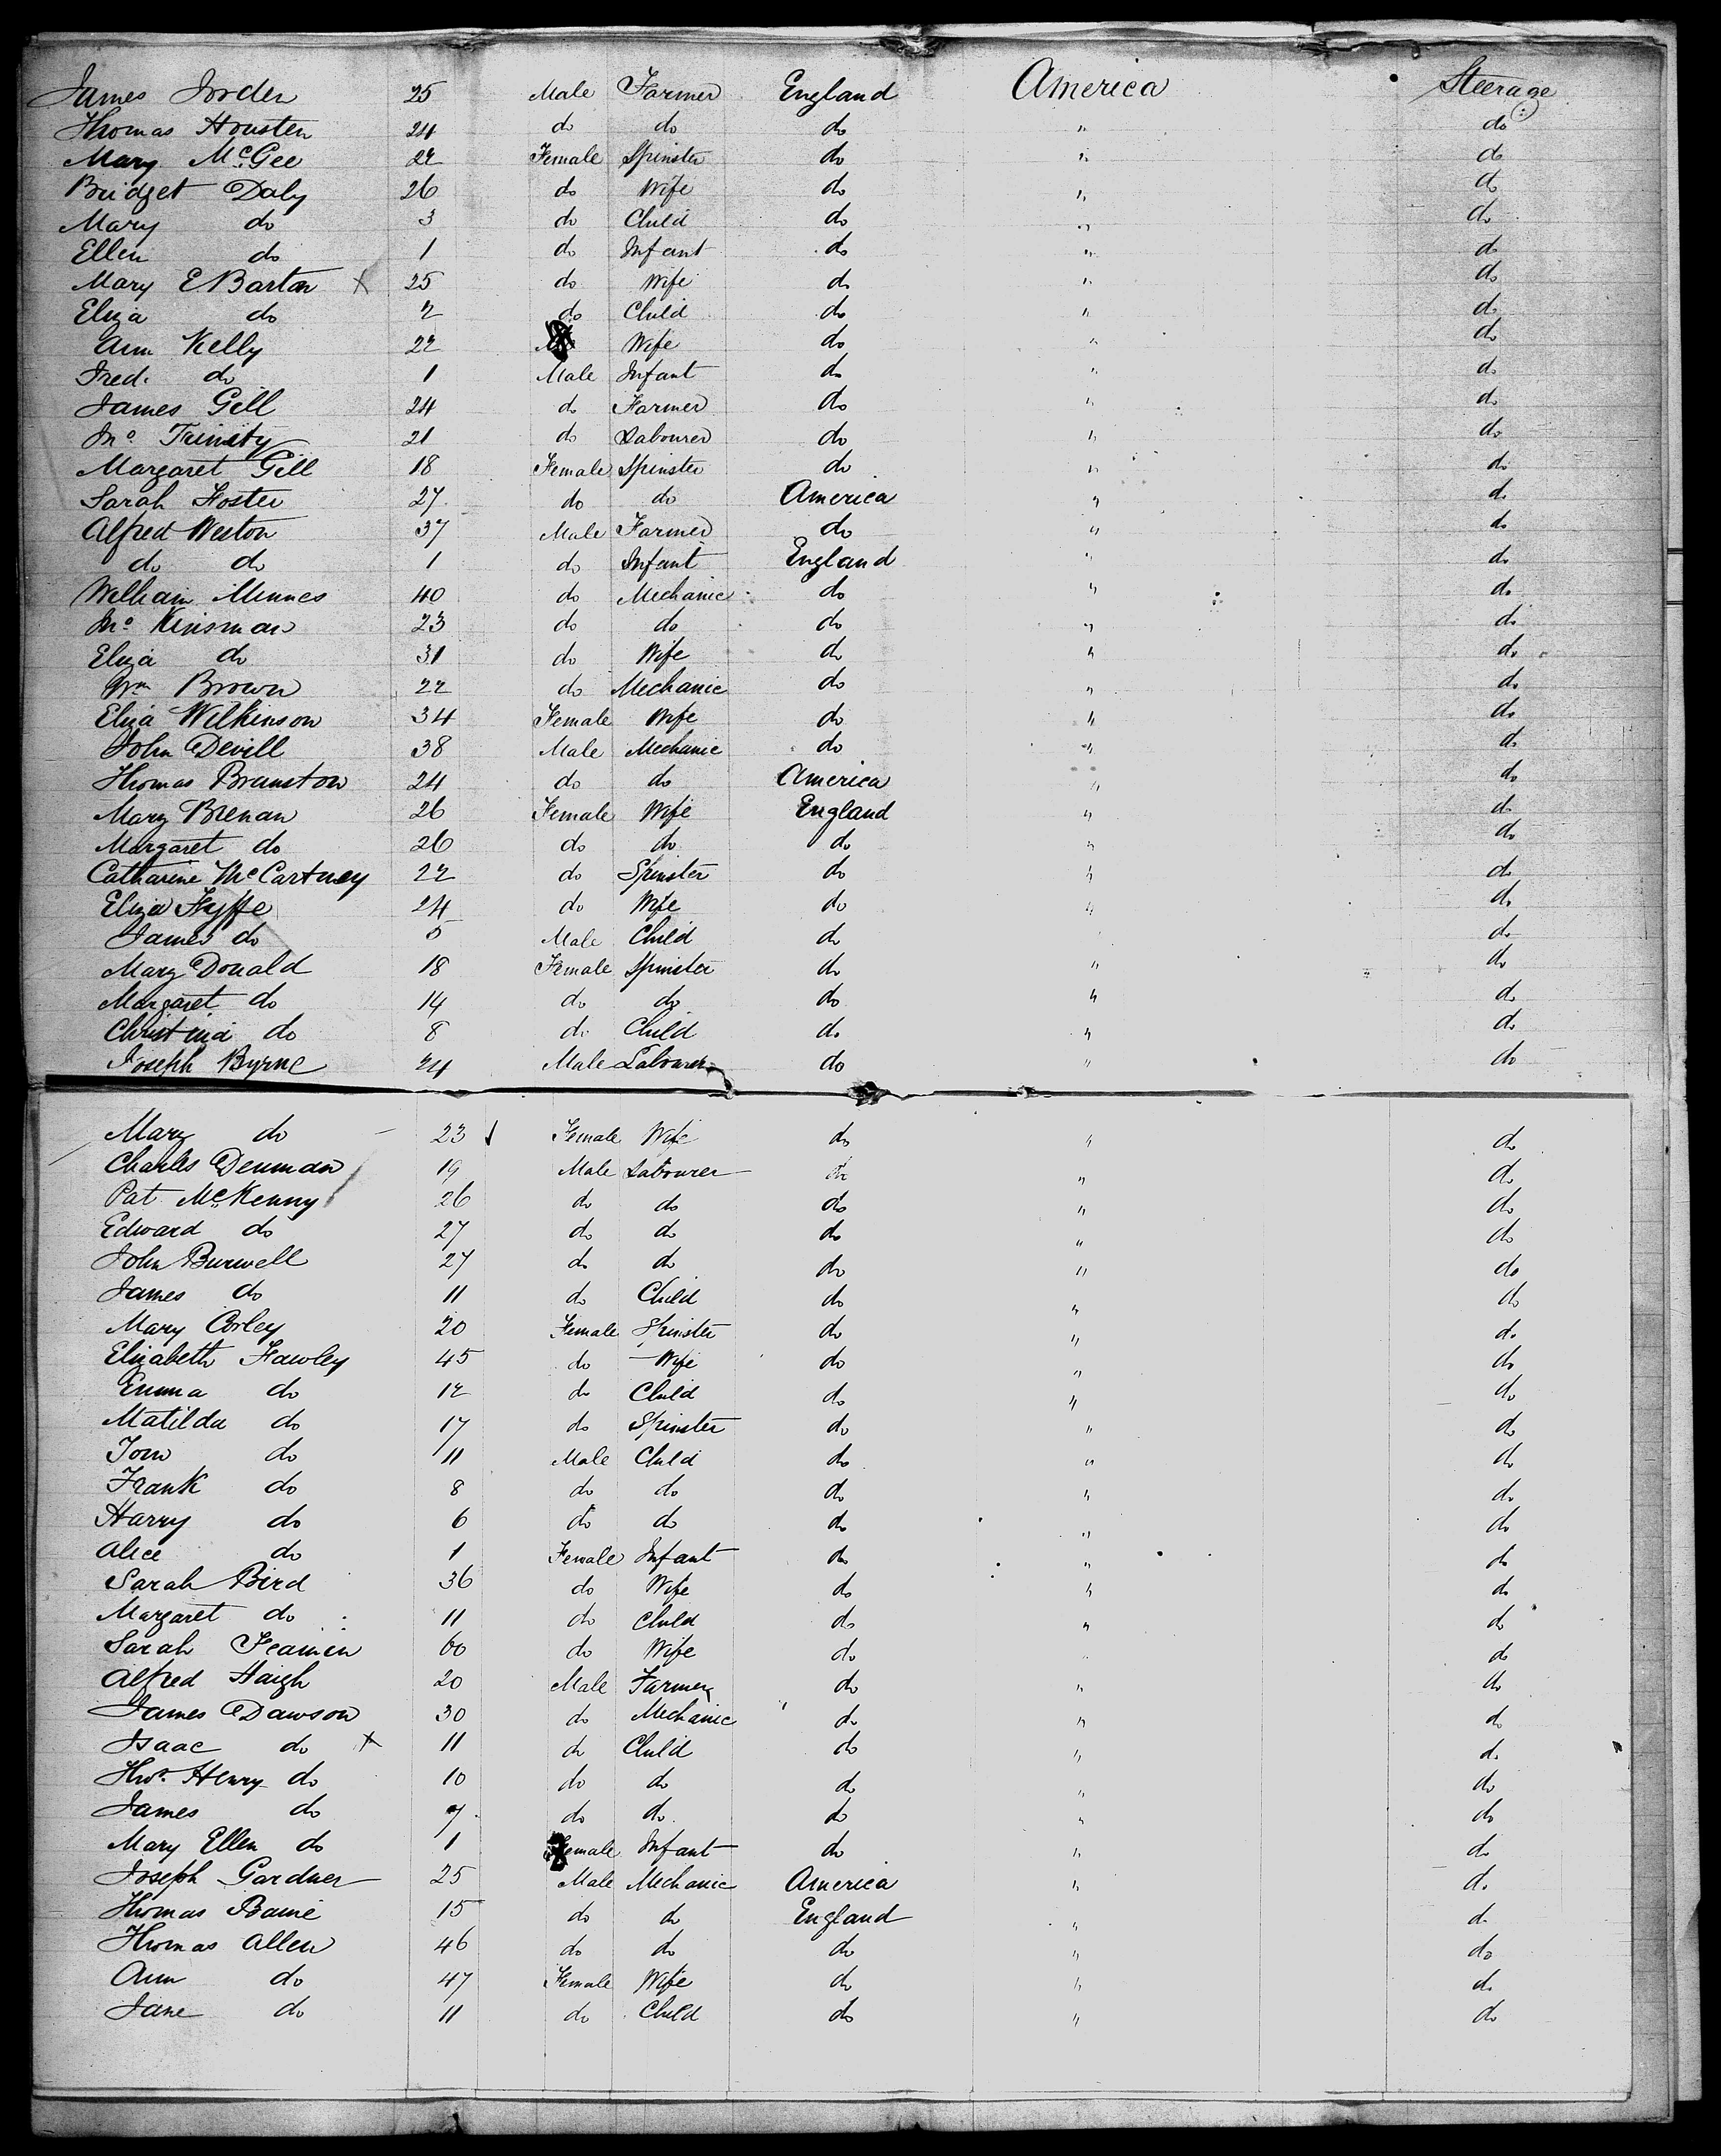 James Jorden 25 Male Farmer England America Steerage
Thomas Housten 24 do do do " do
Mary McGee 22 Female Spinster do " do
Bridget Daly 26 do Wife do " do
Mary do 3 do Child do " do
Ellen do 1 do Infant do " do
Mary E. Barton x 25 do Wife do " do
Eliza do 2 do Child do " do
Ann Kelly 22 Wife do " do
Fred. do 1 Male Infant do " do
James Gill 24 do Farmer do " do
Jno Trinity 21 do Labourer do " do
Margaret Gill 18 Female Spinster do " do
Sarah Foster 27 do do America " do
Alfred Weston 37 Male Farmer do " do
do do 1 do Infant England " do
William Minnes 40 do Mechanic do " do
Jno Kinsman 23 do do do " do
Eliza do 31 do Wife do " do
Wm Brown 22 do Mechanic do " do
Eliza Wilkinson 34 Female Wife do " do
John Devill 38 Male Mechanic do " do
Thomas Branston 24 do do America " do
Mary Brenan 26 Female Wife England " do
Margaret do 26 do do do " do
Catharine McCartney 22 do Spinster do " do
Eliza Fyffe 24 do Wife do " do
James do 5 Male Child do " do
Mary Donald 18 Female Spinster do " do
Margaret do 14 do do do " do
Christina do 8 do Child do " do
Joseph Byrne 24 Male Labourer do " do
Mary do 23 Female Wife do " do
Charles Denman 19 Male Labourer do " do
Pat McKenny 26 do do do " do
Edward do 27 do do do " do
John Burwell 27 do do do " do
James do 11 do Child do " do
Mary Corley 20 Female Spinster do " do
Elizabeth Fawley 45 do Wife do " do
Emma do 12 do Child do " do
Matilda do 17 do Spinster do " do
Tom do 11 Male Child do " do
Frank do 8 do do do " do
Harry do 6 do do do " do
Alice do 1 Female Infant do " do
Sarah Bird 36 do Wife do " do
Margaret do 11 do Child do " do
Sarah 60 do Wife do " do
Alfred Haigh 20 Male Farmer do " do
James Dawson 30 do Mechanic do " do
Isaac do x 11 do Child do " do
Thos. Henry do 10 do do do " do
James do 7 do do do " do
Mary Ellen do 1 Female Infant do " do
Joseph Gardner 25 Male Mechanic America " do
Thomas Baine 15 do do England " do
Thomas Allen 46 do do do " do
Ann do 47 Female Wife do " do
Jane do 11 do Child do " do